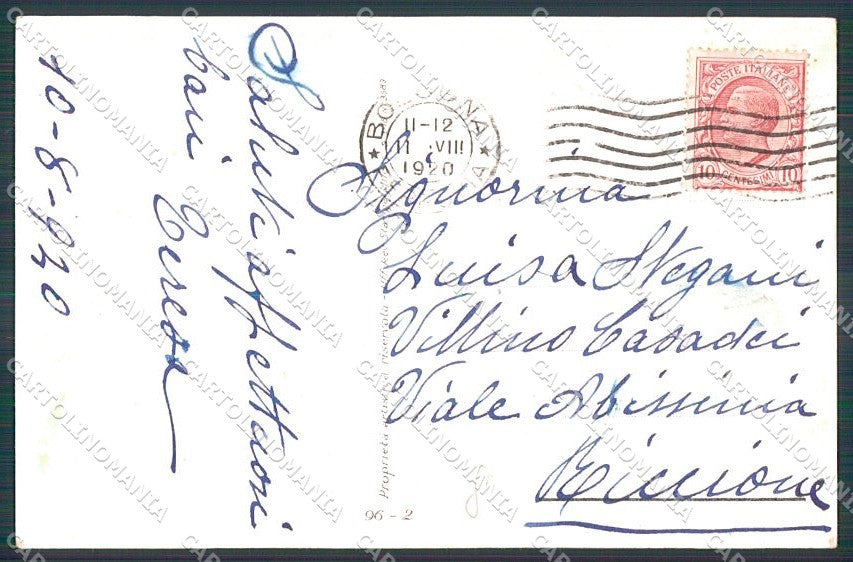 10-8-920
Saluti affettuosi
cari Teresa
BOLOGNA
11-12
11 VIII
1920
POSTE ITALIANE
10 CENTESIMI 10
Signorina
Luisa Negani
Villino Casadei
Viale Abissinia
Riccione
Proprietà artistica Riservata
96 - 2
3689
CARTOLINOMANIA